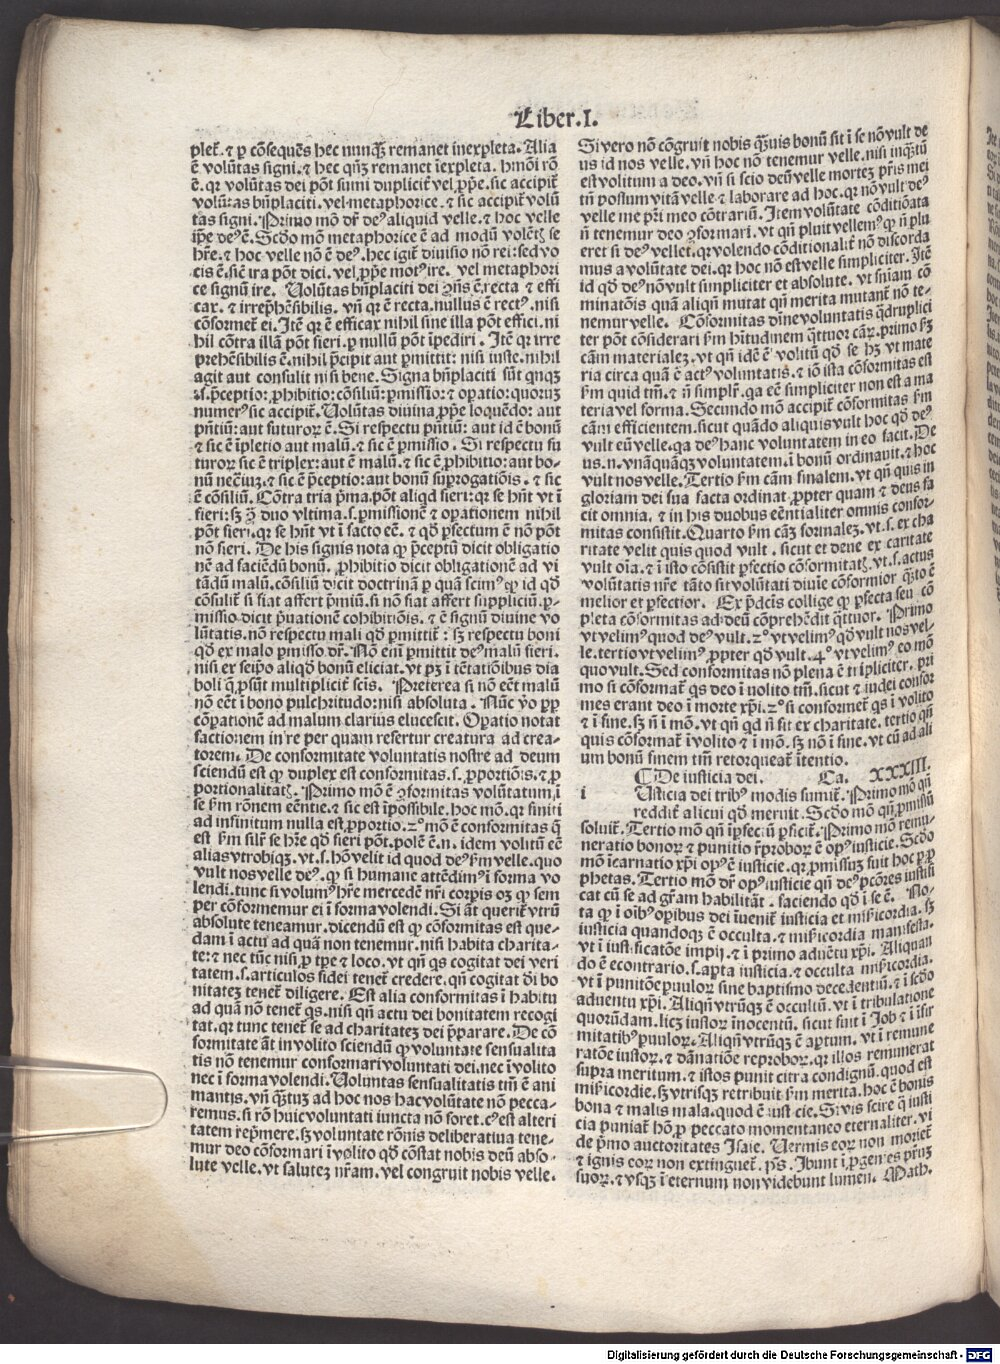 Liber.I.
plet᷑.⁊ ꝑ cōsequēs hec nunꝙ̄ remanet inexpleta. Alia
ē volūtas signi.⁊ hec qñꝫ remanet īexpleta. hmōi rō
ē. qꝛ volūtas dei pōt sumi duplicit᷑ vel ꝓpͥe. sic accipit᷑
volūtas bn̄placiti. vel metaphorice. ⁊ sic accipit᷑ volū
tas signi. Primo mō dr̄ deꝰ aliquid velle. ⁊ hoc velle
ip̄e deꝰ ē. Scd̓o mō metaphorice ē ad modū volētꝭ se
hr̄e. ⁊ hoc velle nō ē deꝰ. hec igit᷑ diuisio nō rei: sed vo
cis ē. sic̄ ira pōt dici. vel ꝓpͥe motꝰ ire. vel metaphori
ce signū ire. Volūtas bn̄placiti dei oīns ē recta ⁊ effi
cax. ⁊ irrep̄hēsibilis. vn̄ qꝛ ē recta. nullus ē rectꝰ. nisi
cōformet᷑ ei. Itē qꝛ ē efficax nihil sine illa pōt effici. ni
hil cōtra illā pōt fieri. ꝑ nullū pōt īpediri. Itē qꝛ irre
prehēsibilis ē. nihil p̄cipit aut ꝑmittit: nisi iuste. nihil
agit aut consulit nisi bene. Signa bn̄placiti sūt qnqꝫ
.s. p̄ceptio: ꝓhibitio: cōsiliū: ꝑmissio: ⁊ oꝑatio: quorum
numerꝰ sic accipit᷑. Volūtas diuina ꝓpͥe loquēdo: aut
pn̄tiū: aut futuroꝝ ē. Si respectu pn̄tiū: aut id ē bonū
⁊ sic ē īpletio aut malū. ⁊ sic ē ꝑmissio. Si respectu fu
turoꝝ sic ē triplex: aut ē malū. ⁊ sic ē ꝓhibitio: aut bo-
nū nec̄iuꝫ. ⁊ sic ē p̄ceptio: aut bonū suꝑrogatiōis. ⁊ sic
ē cōsiliū. Cōtra tria pͥma. pōt aliqd fieri: qꝛ se hn̄t vt ī
fieri: sꝫ ꝯͣ duo vltima. s. ꝑmissionē ⁊ oꝑationem nihil
pōt fieri. qꝛ se hn̄t vt ī facto eē. ⁊ qd̓ ꝑfectum ē nō pōt
nō fieri. De his signis nota ꝙ p̄ceptū dicit obligatio
nē ad faciēdū bonū. ꝓhibitio dicit obligationē ad vi
tādū malū. cōsiliū dicit doctrinā ꝑ quā scimꝰ ꝙ id qd̓
cōsulit᷑ si fiat affert p̄miū. si nō fiat affert suppliciū. ꝑ-
missio dicit pͥuationē cohibitiōis. ⁊ ē signū diuine vo
lūtatis. nō respectu mali qd̓ ꝑmittit᷑: sꝫ respectu boni
qd̓ ex malo ꝑmisso dr̄. Nō em̄ ꝑmittit deꝰ malū fieri.
nisi ex seip̄o aliqd̓ bonū eliciat. vt pꝫ ī tētatiōibus dia
boli q̄ ꝓsūt multiplicit᷑ scīs. Preterea si nō eēt malū
nō eēt ī bono pulchritudo: nisi absoluta. Nūc ꝟo ꝓp
cōꝑationē ad malum clarius elucescit. Oꝑatio notat
factionem in re per quam refertur creatura ad crea-
torem. De conformitate voluntatis nostre ad deum
sciendū est ꝙ duplex est conformitas. s. ꝓportiōis. ⁊ ꝓ
portionalitatꝭ. Primo mō ē ꝯformitas volūtatum. ī
se ẜm rōnem eēntie. ⁊ sic est īpossibile. hoc mō. qꝛ finiti
ad infinitum nulla est ꝓportio. 2º mō ē conformitas q̄
est ẜm silr̄ se hr̄e qd̓ fieri pōt. polē ē. n. idem volitū eē
alias vtrobiqꝫ. vt. s. hō velit id quod deꝰ ẜm velle. quo
vult nos velle deꝰ. ꝙ si humane attēdimꝰ ī forma vo
lendi. tunc si volumꝰ hr̄e mercedē nr̄i corpis oꝫ ꝙ sem
per cōformemur ei ī forma volendi. Si āt querit᷑ vtrū
absolute teneamur. dicendū est ꝙ cōformitas est que-
dam ī actu ad quā non tenemur. nisi habita charita-
te: ⁊ nec tūc nisi ꝓ tp̄e ⁊ loco. vt qn̄ qs cogitat dei veri
tatem. s. articulos fidei tenet᷑ credere. qn̄ cogitat dͥ bo
nitatez tenet᷑ diligere. Est alia conformitas ī habitu
ad quā nō tenet᷑ qs. nisi qn̄ actu dei bonitatem recogi
tat. qꝛ tunc tenet᷑ se ad charitatez dei p̄parare. De cō
formitate āt in volito sciendū ꝙ voluntate sensualita
tis nō tenemur conformari voluntati dei. nec ī volito
nec ī forma volendi. Voluntas sensualitatis tm̄ ē ani
mantis. vn̄ q̄tuꝫ ad hoc nos hac volūtate nō pecca-
remus. si rō huic voluntati iuncta nō foret. cꝰ est alteri
tatem rep̄mere. sꝫ voluntate rōnis deliberatiua tene-
mur deo cōformari ī volito qd̓ cōstat nobis deū abso-
lute velle. vt salutez nr̄am. vel congruit nobis velle.
Si vero nō cōgruit nobis q̄uis bonū sit ī se nō vult de
us id nos velle. vn̄ hoc nō tenemur velle. nisi inq̄tū
est volitum a deo. vn̄ si scio deū velle mortez pr̄is mei
tn̄ possum vitā velle ⁊ laborare ad hoc. qꝛ nō vult deꝰ
velle me pr̄i meo cōtrariū. Item volūtate cōditiōata
n̄ tenemur deo ꝯformari. vt qn̄ pluit vellemꝰ ꝙ n̄ plu
eret si deꝰ vellet. qꝛ volendo cōditionalit᷑ nō discorda
mus a volūtate dei. qꝛ hoc nō est velle simpliciter. Itē
id qd̓ deꝰ nō vult simpliciter et absolute. vt sn̄iam cō
minatōis quā aliqn̄ mutat qn̄ merita mutant᷑ nō te-
nemur velle. Cōformitas dīne voluntatis q̄druplici
ter pōt cōsiderari ẜm hītudinem q̄ttuor cāꝝ. primo ẜm
cām materialez. vt qn̄ idē ē volitū qd̓ se hꝫ vt mate
ria circa quā ē actꝰ voluntatis. ⁊ iō ista cōformitas est
ẜm quid tm̄. ⁊ n̄ simplr̄. qa eē simpliciter non est a ma
teria vel forma. Secundo mō accipit᷑ cōformitas ẜm
cām efficientem. sicut quādo aliquis vult hoc qd̓ deꝰ
vult eū velle. qa deꝰ hanc voluntatem in eo facit. De
us. n. vnāquāqꝫ voluntatem. ī bonū ordinauit. ⁊ hoc
vult nos velle. Tertio ẜm cām finalem. vt qn̄ quis in
gloriam dei sua facta ordinat ꝓpter quam ⁊ deus fa
cit omnia. ⁊ in his duobus eēntialiter omnis confor-
mitas consistit. Quarto ẜm cāꝫ formalez. vt. s. ex cha
ritate velit quis quod vult. sicut et deus ex caritate
vult oīa. ⁊ ī isto cōsistit ꝑfectio cōformitatꝭ. vt. s. actus
volūtatis nr̄e tāto sit volūtati diuīe cōformior q̄to ē
melior et ꝑfectior. Ex p̄dc̄is collige ꝙ ꝑfecta seu cō
pleta cōformitas ad deū cōprehēdit q̄ttuor. Primo
vt velimꝰ quod deꝰ vult. 2º vt velimꝰ qd̓ vult nos vel-
le. tertio vt velimꝰ ꝓpter qd̓ vult. 4º vt velimꝰ eo mō
quo vult. Sed conformitas nō plena ē tripliciter. pri
mo si cōformat᷑ qs deo ī volito tm̄. sicut ⁊ iudei confor
mes erant deo ī morte xp̄i. 2º si conformet᷑ qs ī volito
⁊ ī fine. sꝫ n̄ ī mō. vt qn̄ qd n̄ sit ex charitate. tertio qn̄
quis cōformat᷑ ī volito ⁊ ī mō. sꝫ nō ī fine. vt cū ad ali
um bonū finem tm̄ retorqueat᷑ ītentio.
⸿ De iusticia dei. Ca. XXXIII.
i Usticia dei tribꝰ modis sumit᷑. Primo mō qn̄
reddit᷑ alicui qd̓ meruit. Scd̓o mō qn̄ ꝓmissū
soluit᷑. Tertio mō qn̄ īꝑfectū ꝑficit᷑. Primo mō remu
neratio bonoꝝ ⁊ punitio rꝓboꝝ ē opꝰ iusticie. Scd̓o
mō īcarnatio xp̄i opꝰ ē iusticie. qꝛ ꝓmissuꝫ fuit hoc ꝑ ꝓ
phetas. Tertio mō dr̄ opꝰ iusticie qn̄ deꝰ pctōres iustifi
cat cū se ad gr̄am habilitāt. faciendo qd̓ ī se ē. No-
ta ꝙ ī oībꝰ oꝑibus dei īuenit᷑ iusticia et mīẜicordia. sꝫ
iusticia quandoqꝫ ē occulta. ⁊ mīẜicordia manifesta.
vt ī iustificatōe impij. ⁊ ī primo aduētu xp̄i. Aliquan
do ē econtrario. s. aꝑta iusticia. ⁊ occulta mīẜicordia.
vt ī punitōe ꝑuuloꝝ sine baptismo decedentiū. ⁊ ī scd̓o
aduentu xp̄i. Aliqn̄ vtrūqꝫ ē occultū. vt ī tribulatione
quorūdam. licꝫ iustoꝝ īnocentū. sicut fuit ī Job ⁊ ī īfir
mitatibꝰ ꝑuuloꝝ. Aliqn̄ vtrūqꝫ ē aꝑtum. vt ī remune
ratōe iustoꝝ. ⁊ dānatiōe reproboꝝ. qꝛ illos remunerat
supra meritum. ⁊ istos punit citra condignū. quod est
mīẜicordie. sꝫ vtrisqꝫ retribuit ẜm merita. hoc ē bonis
bona ⁊ malis mala. quod ē iusticie. Si vis scire q̄ iusti
cia puniat᷑ hō ꝓ peccato momentaneo eternaliter. vi
de pͥmo auctoritates Isaie. Uermis eoꝝ non moriet᷑
⁊ ignis eoꝝ non extinguet᷑. ps̄. Ibunt ī ꝓgenies pr̄uꝫ
suoꝝ. ⁊ vsqꝫ ī eternum non videbunt lumen. Math.
Digitalisierung gefördert durch die Deutsche Forschungsgemeinschaft - DFG